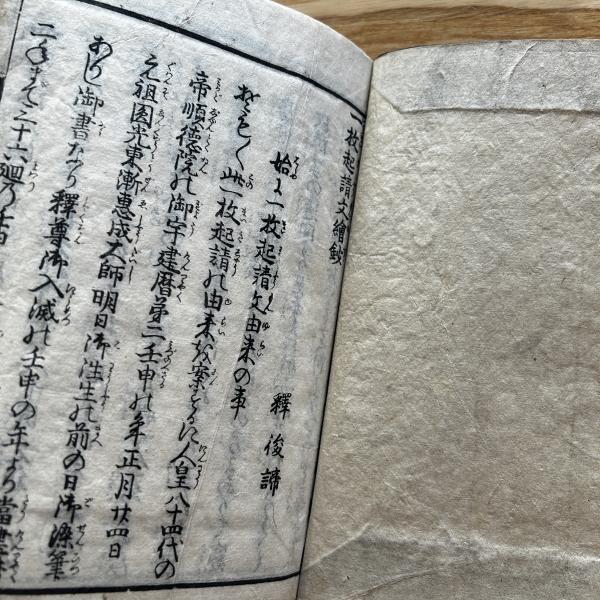 一枚起請文繪鈔
釋俊諦
始に一枚起請文由来の事
そも〳〵此一枚起請の由来を案ずるに人皇八十四代の
帝順徳院の御宇建暦第二壬申の年正月廿四日
元祖圓光東漸慧成大師明日御往生の前の日御染筆
あり御書なり釋尊御入滅の壬申の年より當建暦
二年まで二千